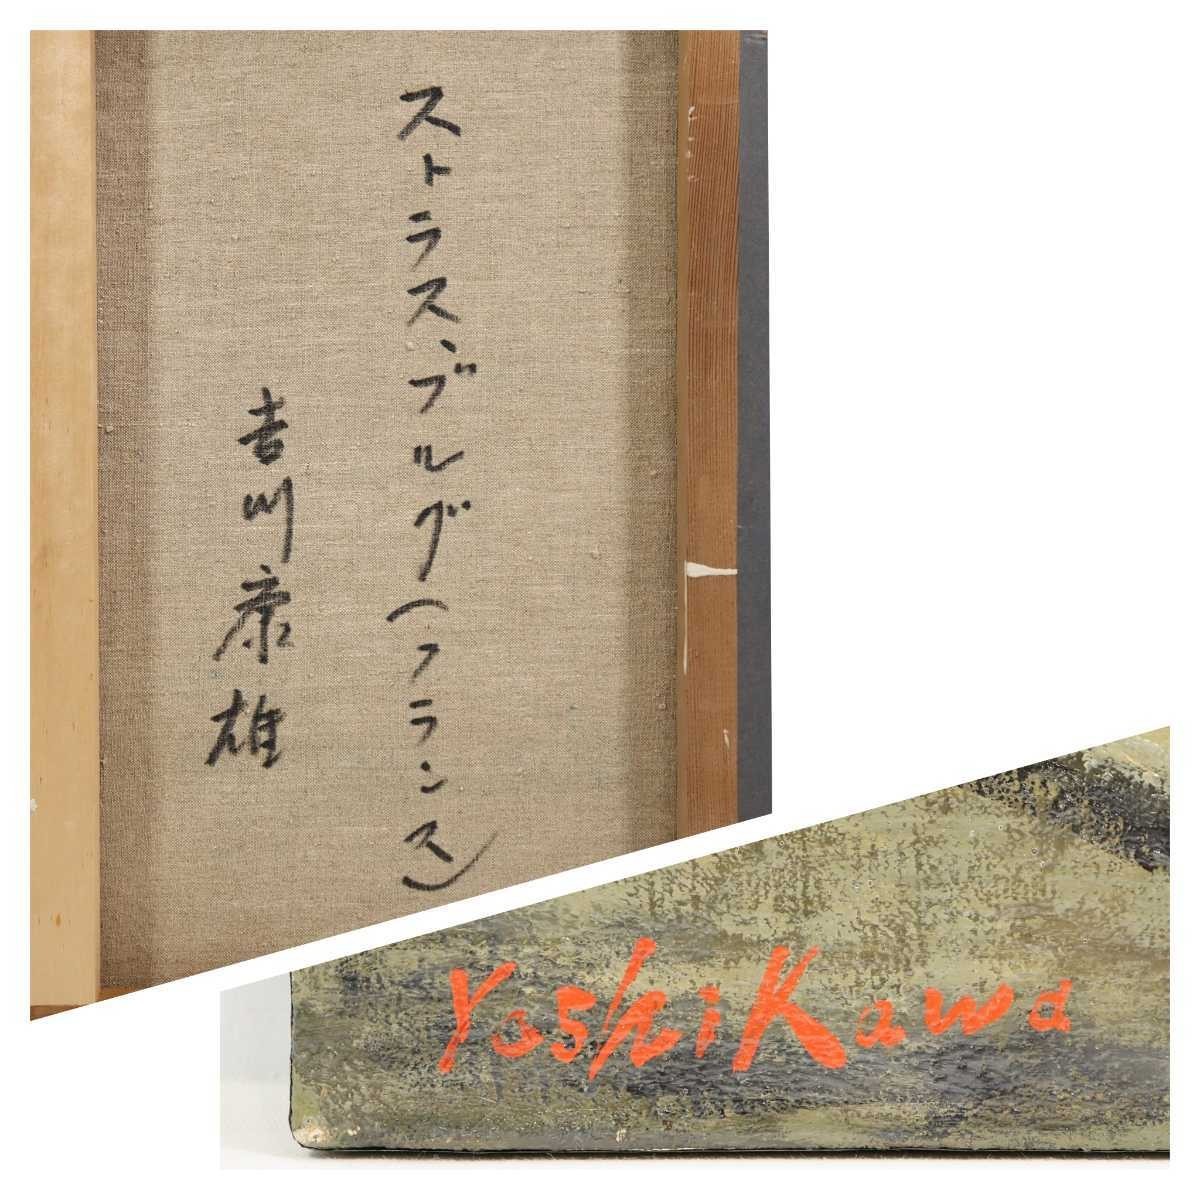 ストラスブルグ(フランス)
吉川康雄
YoshiKawa